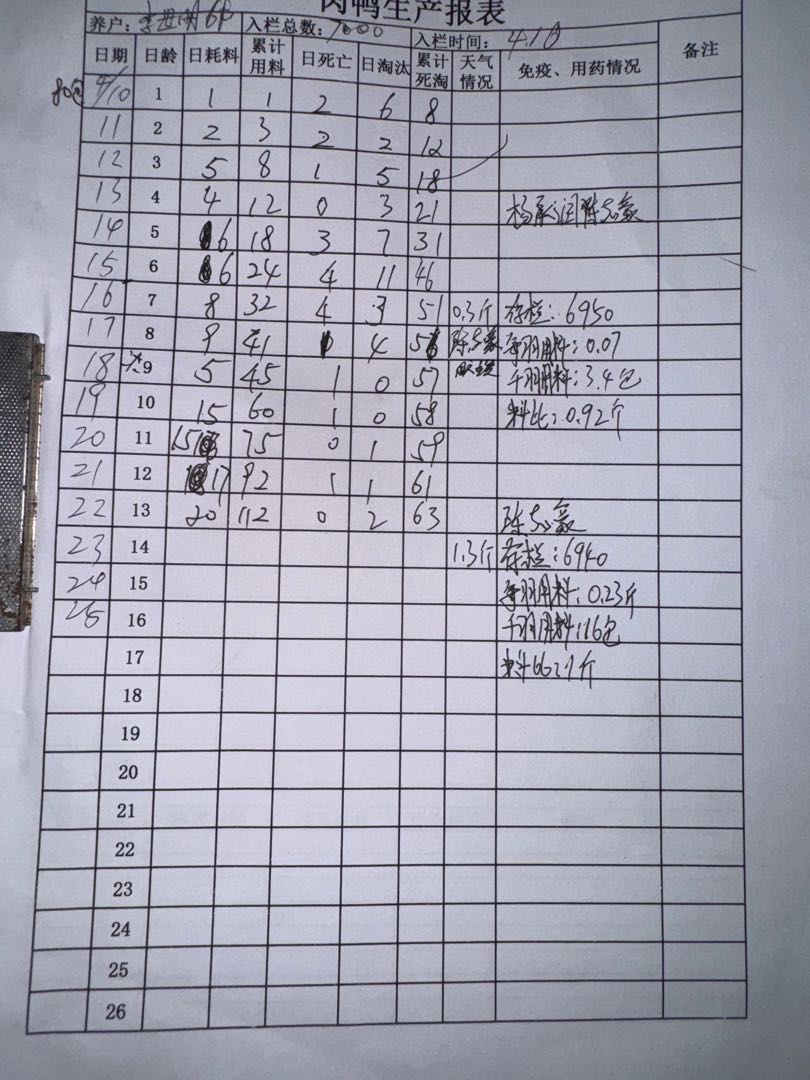 肉鸭生产报表
养户: 李世明6户 入栏总数: 7000 入栏时间: 4.10
日期 日龄 日耗料 累计用料 日死亡 日淘汰 累计死淘 天气情况 免疫、用药情况 备注
4/10 1 1 1 2 6 8
11 2 2 3 2 2 12
12 3 5 8 1 5 18
13 4 4 12 0 3 21
14 5 6 18 3 7 31
15 6 6 24 4 11 46
16 7 8 32 4 3 51 0.3斤 存栏: 6950
17 8 9 41 4 每羽用料: 0.07
18 9 5 45 1 0 57 千羽用料: 3.4包
19 10 15 60 1 0 58 料比: 0.92斤
20 11 15 75 0 1 59
21 12 17 92 1 1 61
22 13 20 112 0 2 63
23 14 1.3斤 存栏: 6940
24 15 每羽用料: 0.23斤
25 16 千羽用料: 16包
17 料比: 1斤
18
19
20
21
22
23
24
25
26